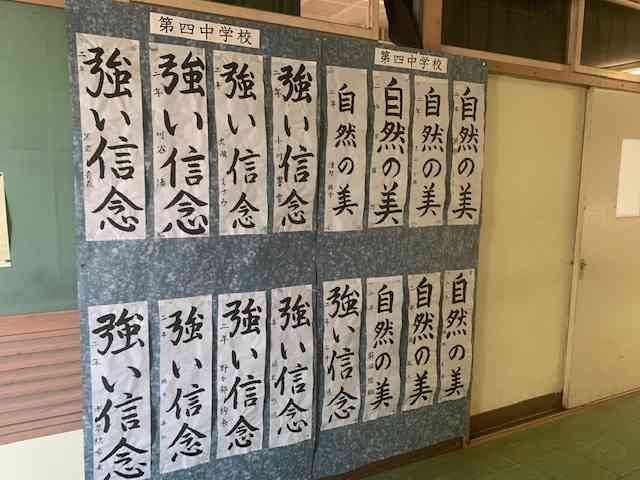 第四中学校
第四中学校
強い信念
強い信念
強い信念
強い信念
自然の美
自然の美
自然の美
自然の美
強い信念
強い信念
強い信念
強い信念
強い信念
自然の美
自然の美
自然の美